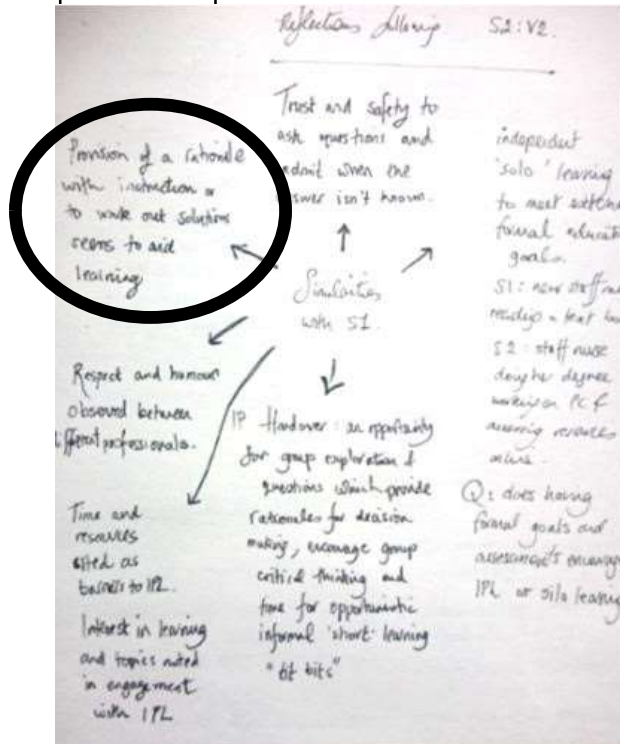 Reflections following S2: V2.
Trust and safety to
ask questions and
admit when the
answer isn't known.
Provision of a rationale
with instruction or
to work out solutions
seems to aid
learning
independent
'solo' learning
to meet
formal
goals.
S1: new staff
reading a text
S2: staff nurse
doing her degree
working on PC &
accessing resources
online.
Q: does having
formal goals and
assessments encourage
IPL or silo learning
Similarities
with S1.
Respect and humour
observed between
different professionals.
IP Handover: an opportunity
for group exploration &
questions which provide
rationales for decision
making, encourage group
critical thinking and
time for opportunistic
informal 'short' learning
"tit bits"
Time and
resources
cited as
barriers to IPL.
Interest in learning
and topics noted
in engagement
with IPL